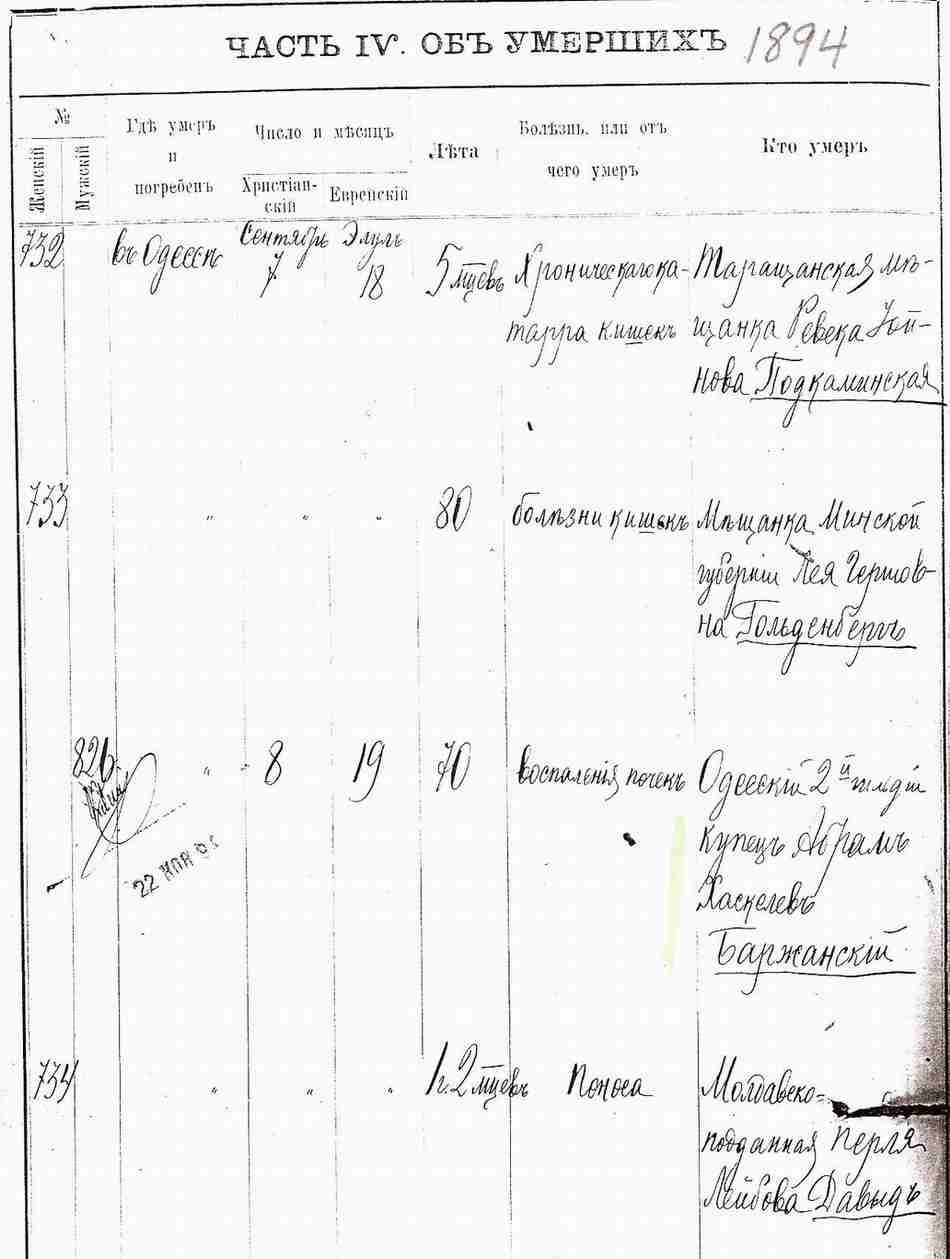 ЧАСТЬ IV. ОБЪ УМЕРШИХЪ 1894
№
Женскій
Мужской
Гдѣ умеръ
и
погребенъ
Число и мѣсяцъ
Христіан-
скій
Еврейскій
Лѣта
Болѣзнь или отъ
чего умеръ
Кто умеръ
732 въ Одессѣ Сентябрь 7 Элулъ 18 5 мцевъ Хроническаго ка- Таращанская мѣ-
тарра кишекъ щанка Ревека Іой-
нова Подкаминская
733 " " " 80 болѣзни кишекъ Мѣщанка Минской
губерніи Лея Гершов-
на Гольденбергъ
826 " 8 19 70 воспаленія почекъ Одесскій 2й гильдіи
купецъ Абрамъ
22 МАЯ
Хаскелевъ
Баржанскій
734 " " " 1 г. 2 мцевъ Поноса Молдавско-
подданная Перля
Лейбова Давыдъ